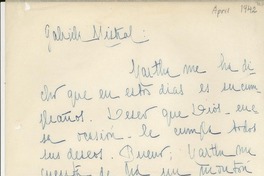 April 1942
Gabriela Mistral:
Martha me ha di-
cho que en estos días es su cum-
pleaños. Deseo que Dios, en
se ocasión le cumpla todos
sus deseos. Martha me
cuenta de Ud. un montón